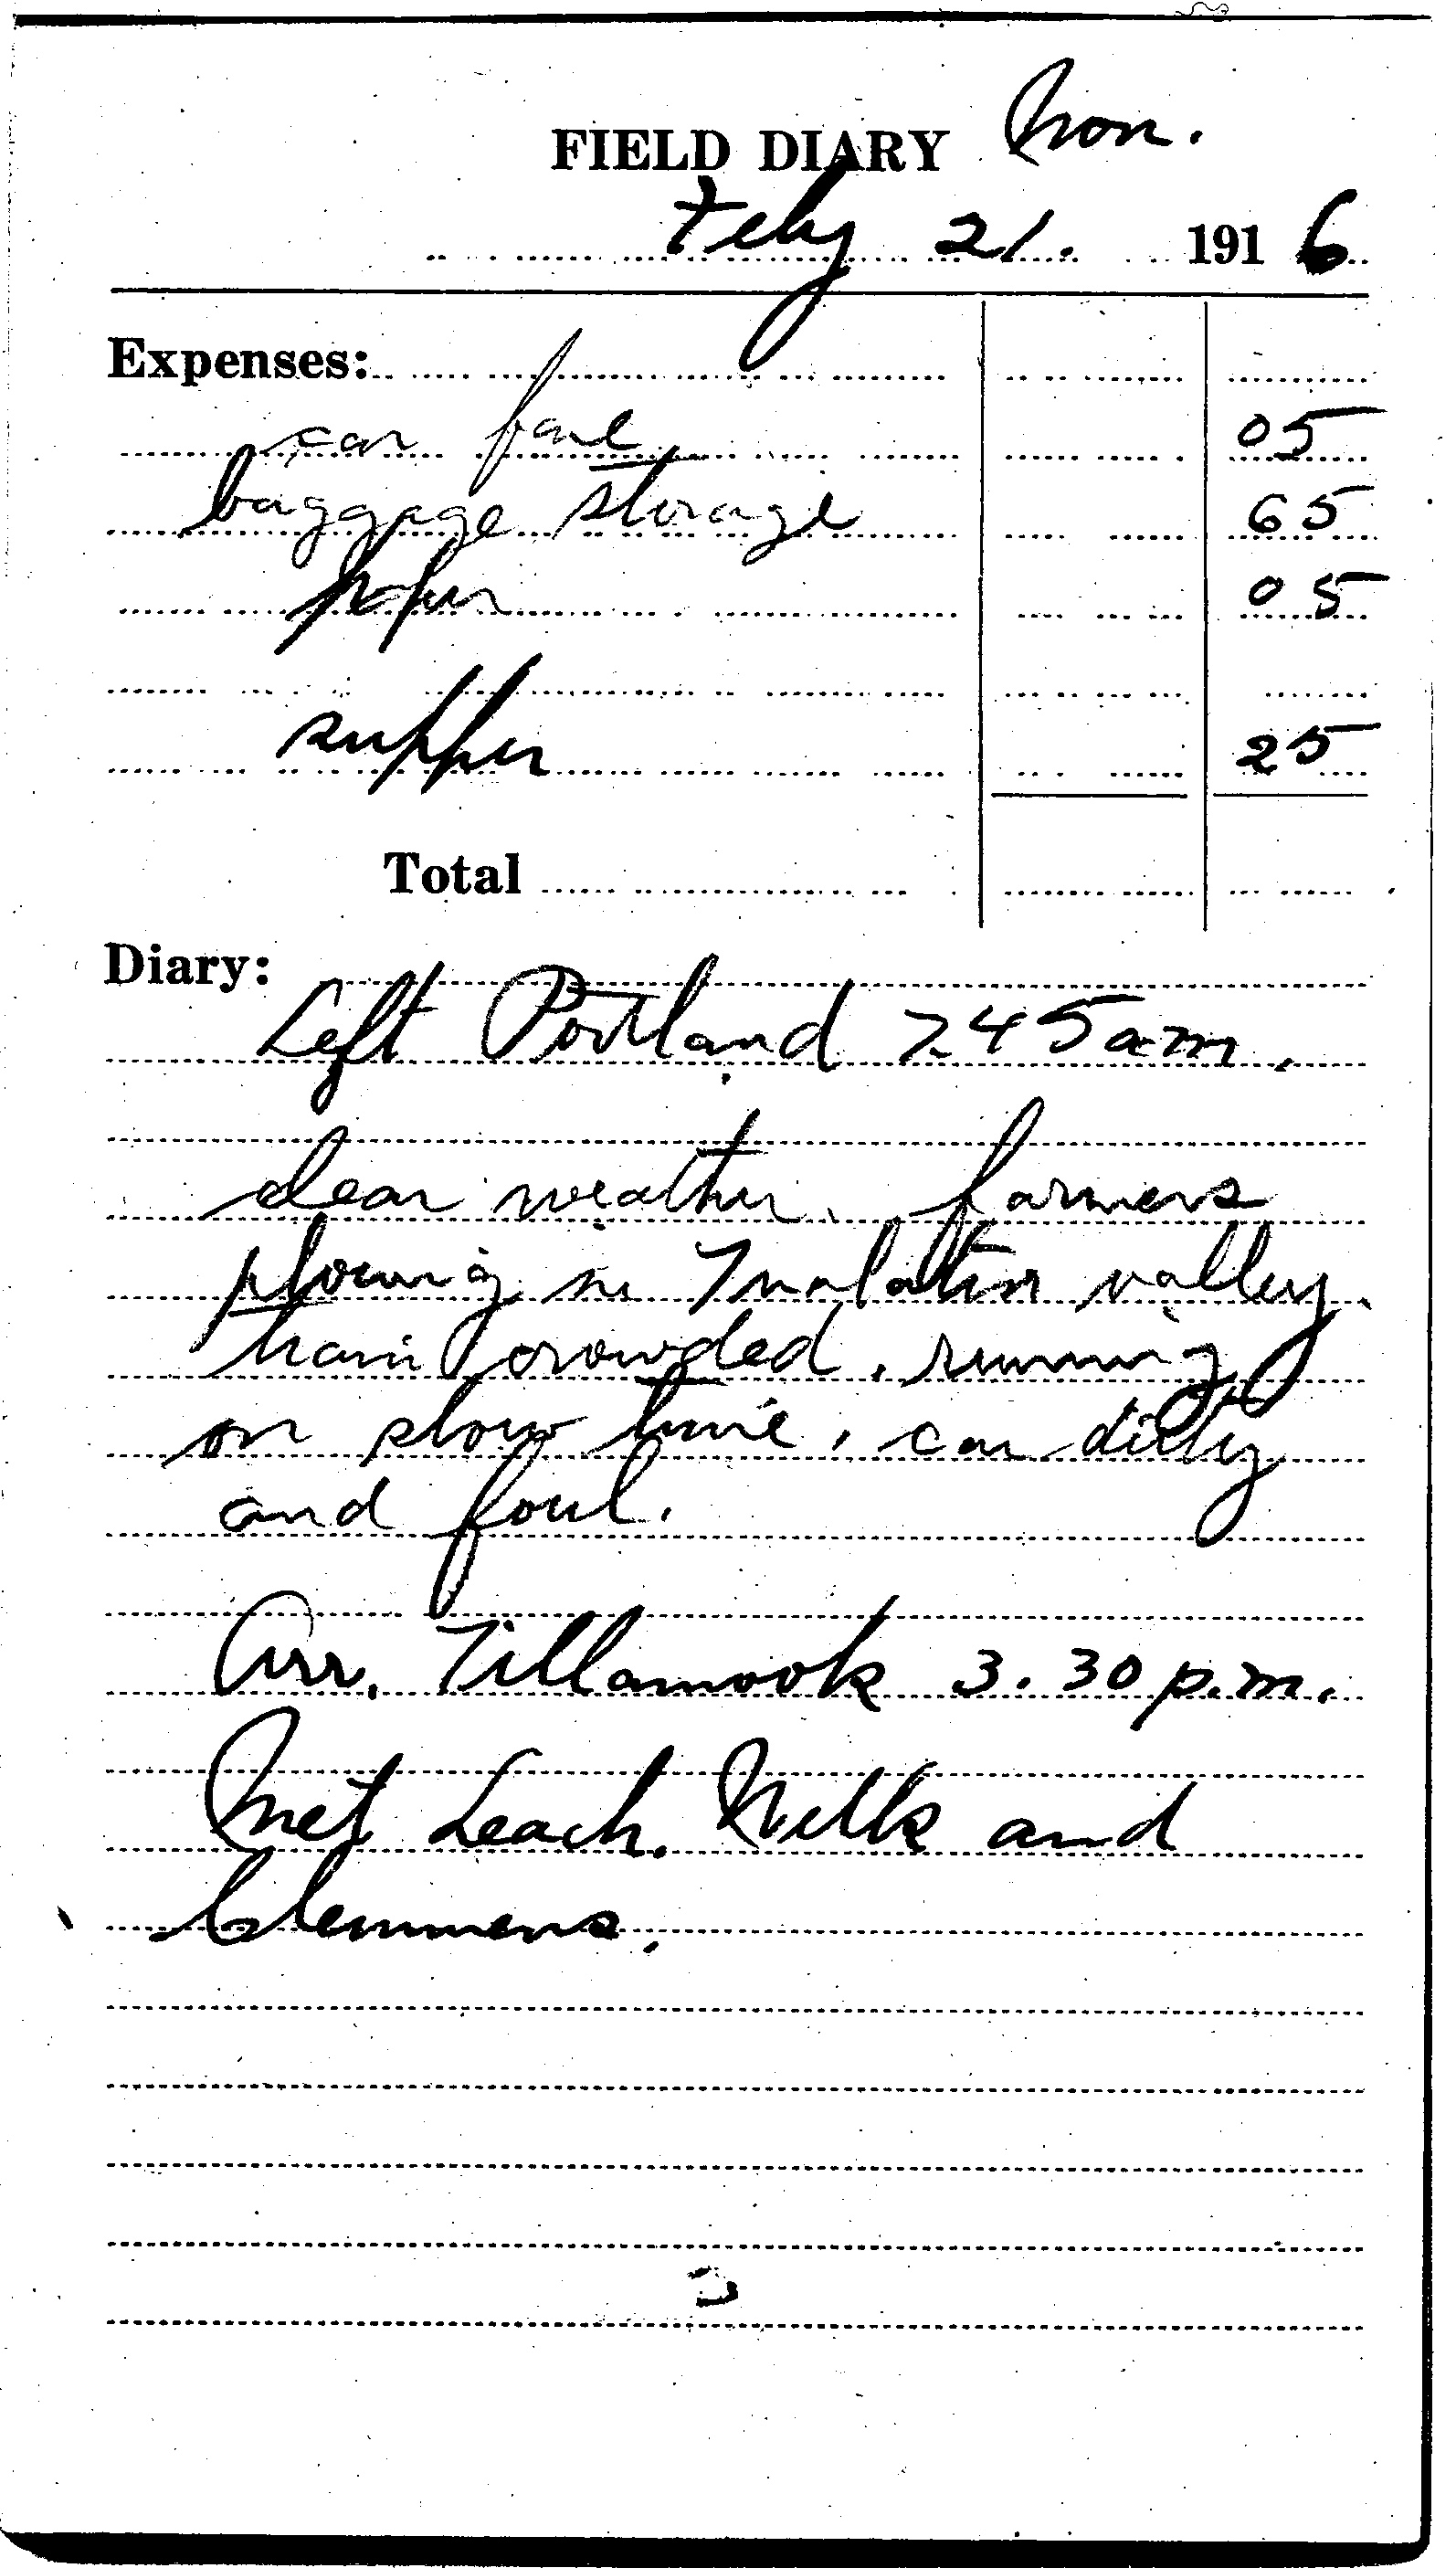 FIELD DIARY Mon.
Feby 21. 1916
Expenses:
car fare 05
baggage storage 65
paper 05
supper 25
Total
Diary:
Left Portland 745 am.
clear weather. farmers
plowing in Tualatin valley.
train crowded, running
on slow time, car dirty
and foul.
Arr. Tillamook 3.30 p.m.
Met Leach. and
Clemmens.